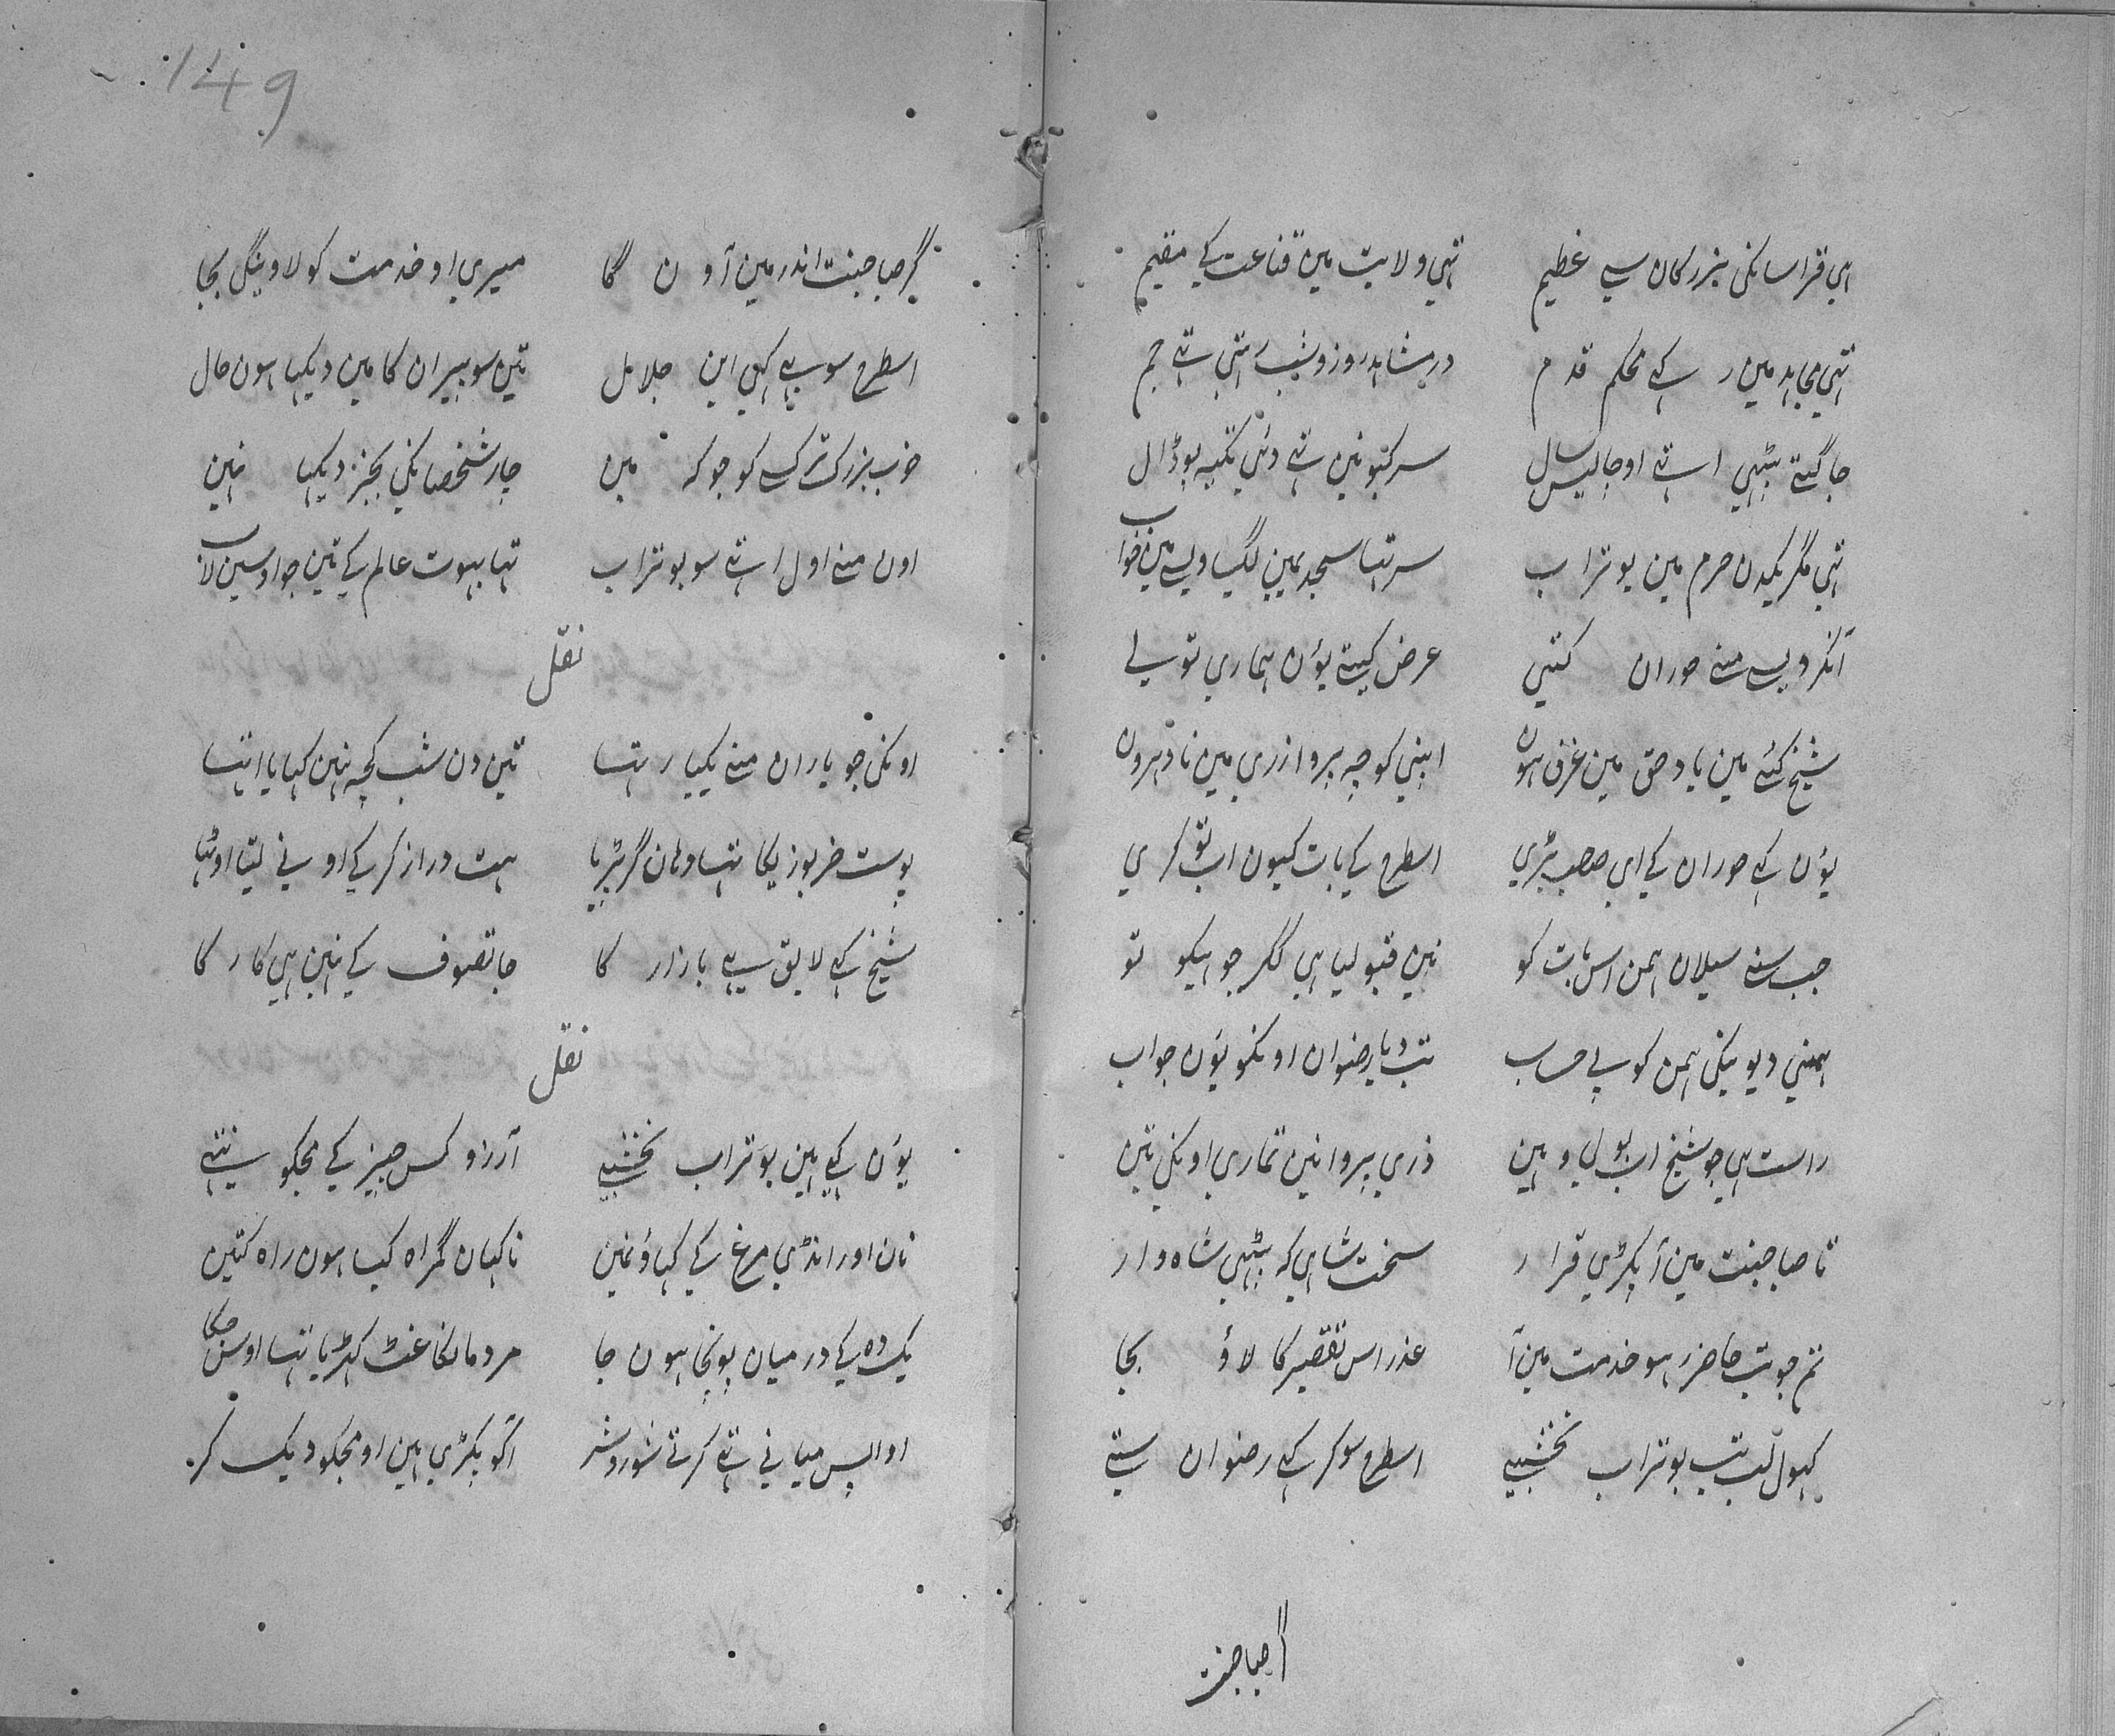 ہی قراسانکی بزرگان سے عظیم تہی ولایت مین قناعت کے مقیم
تہی مجاہد مین رہے محکم قدم در مشاہد روز و شب رہتے تہے جم
جاگتے بیٹہی اتہے او چالیس سال سر کبو نین تہے دئی تکیہ پو ڈال
تہی مگر یکدن حرم مین بوتراب سر تہا سجد یمین لگیا ویسے مین خواب
آنکر ویسے منے حوران کتنی عرض کیتے یون ہماری تو لے
شیخ کئے مین یاد حق مین غرق ہون اپنی کو چہ پروا ذری مین نا دہرون
یون کہے حوران کے ای صاحب بڑی اسطرح کے بات کیون اب تو کری
جب سنے سیلان ہمن اس بات کو نین قبولیا ہی لگر جو ہیکو تو
ہمنی دیوینگی ہمن کو بے حساب تب دیا رضوان اونکو یون جواب
راست ہی جو شیخ اب بولیا و ہین ذری پروا نین تماری اونکی تین
تا صبا جنت مین آ پکڑی قرار سخت شاہی کہ بیٹہی شاہ وار
تم جو تب حاضر ہو خدمت مین آ عذر اس تقصیر کا لاؤ بجا
کہول لب تب بوتراب نخشبی اسطرح سو کر کہے رضوان ستے
گر صبا جنت
149
گر صبا جنت اندر مین آون گا میری او خدمت کو لاوینگی بجا
اسطرح سو ہے کہی ابن جلا مل تین سو پیران کا مین دیکہیا ہون حال
خوب بزرک ترک کو جو کہ مین چار شخصانکی بجز دیکہیا نین
اون منے اول اتہے سو بوتراب تہا بہوت عالم کے تین جو اوسین لاب
نقل
اونکی جو یاران منے یکیار تہا تین دن شب کچہ نین کہایا اتہا
پوست خربوزیکا تہا وہان گر پڑیا ہت دراز کر کے او نے لیتا اوٹہا
شیخ کہے لایق ہے بازار کا جا تصوف کے نین ہی کار کا
نقل
یون کہے ہین بوتراب نخشبی آرزو کس چیز کے مجکو نتہے
نان اور انڈی مرغ کے کہاؤنین ناگہان گمراہ کیا ہون راہ کتین
یک دہ کے درمیان پونچا ہون جا مردمانکا غٹ کہڑیا تہا اوس جگا
او اپس میانے تہے کرتے شور و شر آکو پکڑی ہین او مجکو دیک کر